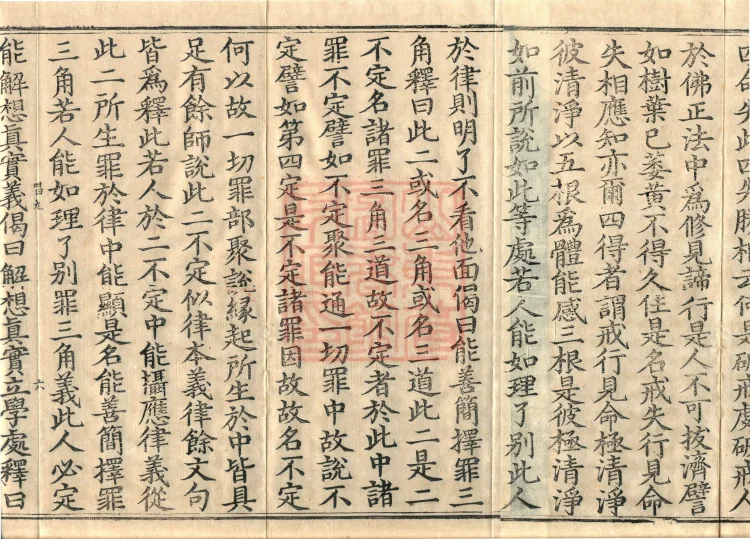 於佛正法中爲修見諦行是人不可拔濟譬
如樹葉已萎黃不得久住是名戒失行見命
失相應知亦爾四得者謂戒行見命極清淨
彼清淨以五根爲體能感三根是彼極清淨
如前所說如此等處若人能如理了別此人
於律則明了不看他面偈曰能善簡擇罪三
角釋曰此二或名三角或名三道此二是二
不定名諸罪三角三道故不定者於此中諸
罪不定譬如不定聚能通一切罪中故說不
定譬如第四定是不定諸罪因故故名不定
何以故一切罪部聚說緣起所生於中皆具
足有餘師說此二不定似律本義律餘文句
皆爲釋此若人於二不定中能攝應律義從
此二所生罪於律中能顯是名能善簡擇罪
三角若人能如理了別罪三角義此人必定
六
能解想真實義偈曰解想真實立學處釋曰